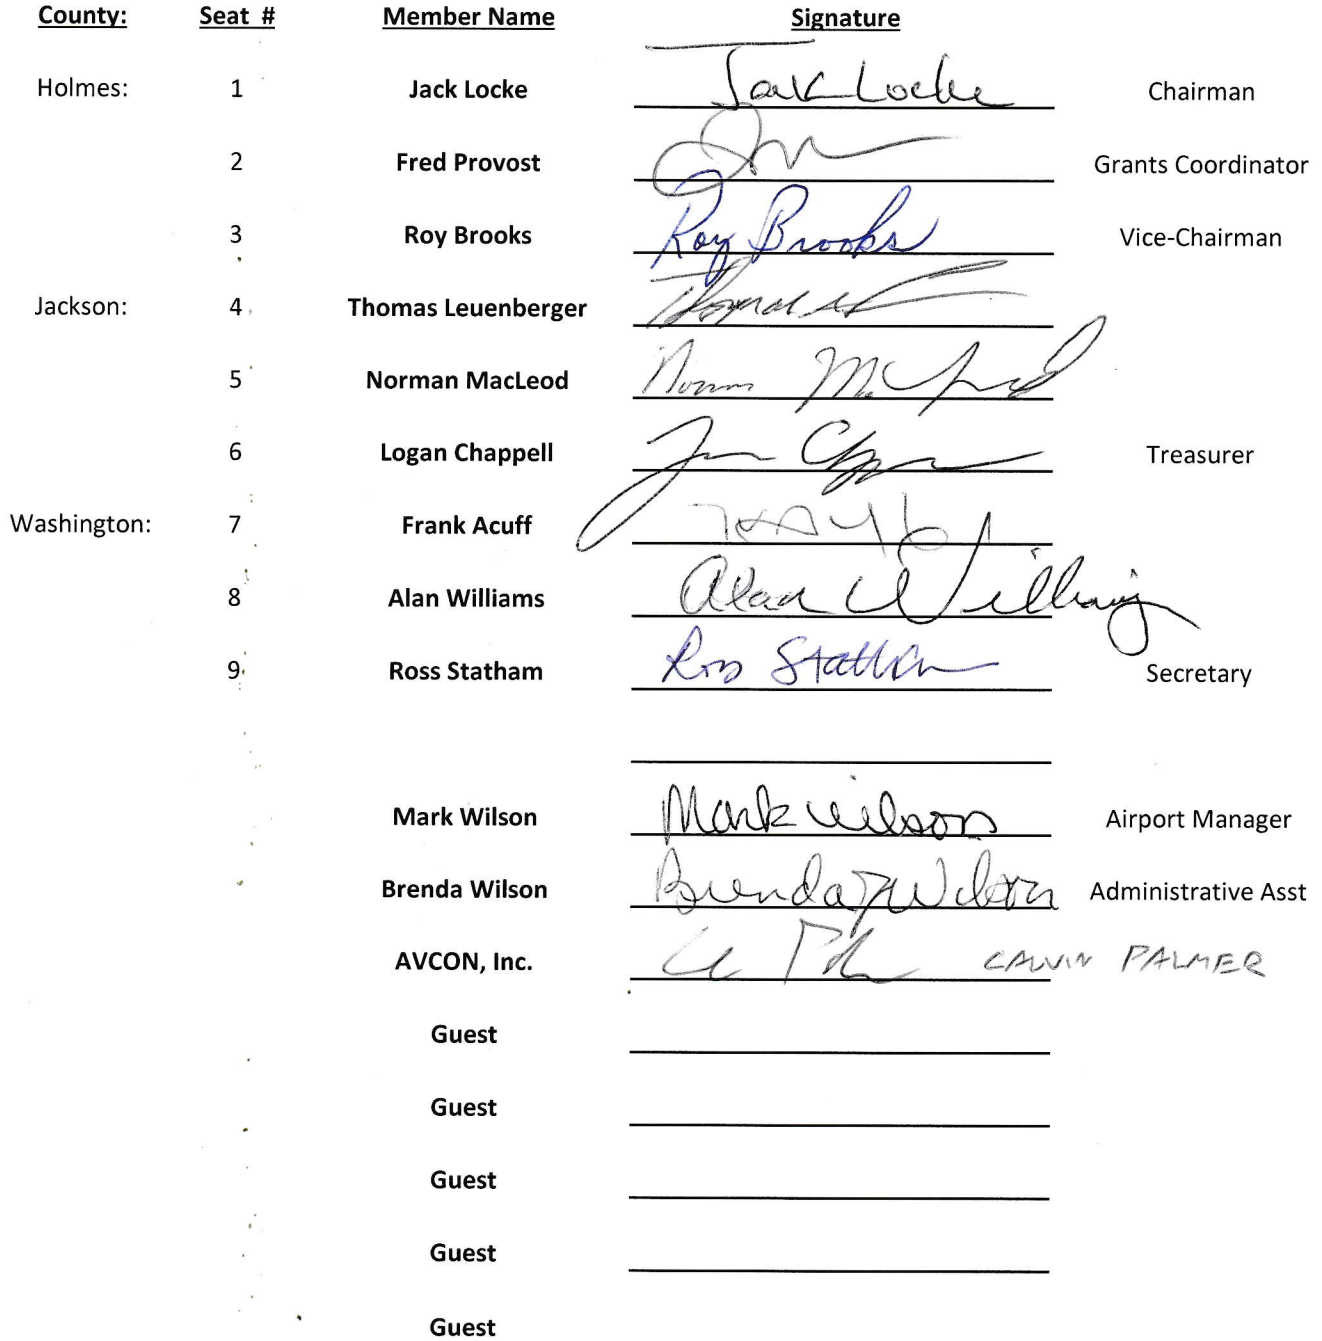 County: Seat # Member Name Signature
Holmes: 1 Jack Locke Jack Locke Chairman
2 Fred Provost Grants Coordinator
3 Roy Brooks Roy Brooks Vice-Chairman
Jackson: 4 Thomas Leuenberger Thomas
5 Norman MacLeod Norm MacLeod
6 Logan Chappell Treasurer
Washington: 7 Frank Acuff
8 Alan Williams Alan Williams
9 Ross Statham Ross Statham Secretary
Mark Wilson Mark Wilson Airport Manager
Brenda Wilson Brenda Wilson Administrative Asst
AVCON, Inc. CALVIN PALMER
Guest
Guest
Guest
Guest
Guest